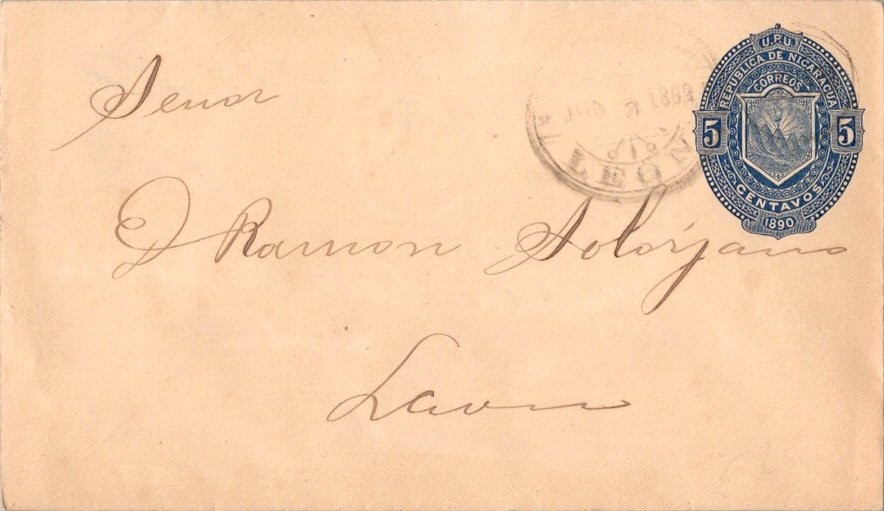 Señor
D Ramon Solórzano
León
U.P.U.
REPUBLICA DE NICARAGUA
CORREOS
5 5
CENTAVOS
1890
2
LEON